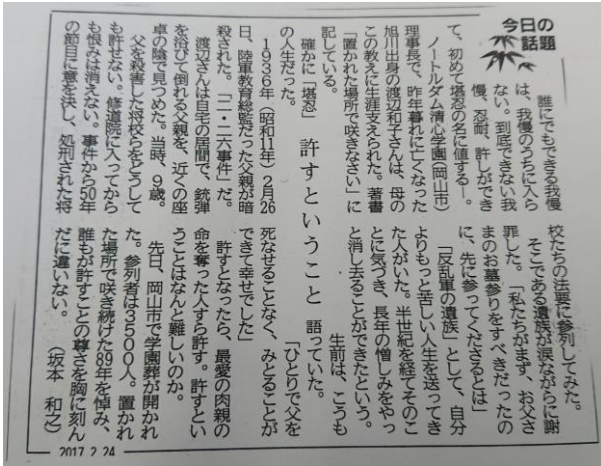 今日の話題
許すということ
誰にでもできる我慢
は、我慢のうちに入ら
ない。到底できない我
慢、忍耐、許しができ
て、初めて堪忍の名に値する―。
ノートルダム清心学園(岡山市)
理事長で、昨年暮れに亡くなった
旭川出身の渡辺和子さんは、母の
この教えに生涯支えられた。著書
「置かれた場所で咲きなさい」に
記している。
確かに「堪忍」
の人生だった。
1936年(昭和11年)2月26
日、陸軍教育総監だった父親が暗
殺された。「二・二六事件」だ。
渡辺さんは自宅の居間で、銃弾
を浴びて倒れる父親を、近くの座
卓の陰で見つめた。当時、9歳。
父を殺害した将校らをどうして
も許せない。修道院に入ってから
も恨みは消えない。事件から50年
の節目に意を決し、処刑された将
校たちの法要に参列してみた。
そこである遺族が涙ながらに謝
罪した。「私たちがまず、お父さ
まのお墓参りをすべきだったの
に、先に参ってくださるとは」
「反乱軍の遺族」として、自分
よりもっと苦しい人生を送ってき
た人がいた。半世紀を経てそのこ
とに気づき、長年の憎しみをやっ
と消し去ることができたという。
生前は、こうも
語っていた。
「ひとりで父を
死なせることなく、みとることが
できて幸せでした」
許すとなったら、最愛の肉親の
命を奪った人すら許す。許すとい
うことはなんと難しいのか。
先日、岡山市で学園葬が開かれ
た。参列者は3500人。置かれ
た場所で咲き続けた89年を悼み、
誰もが許すことの尊さを胸に刻ん
だに違いない。(坂本 和之)
2017.2.24